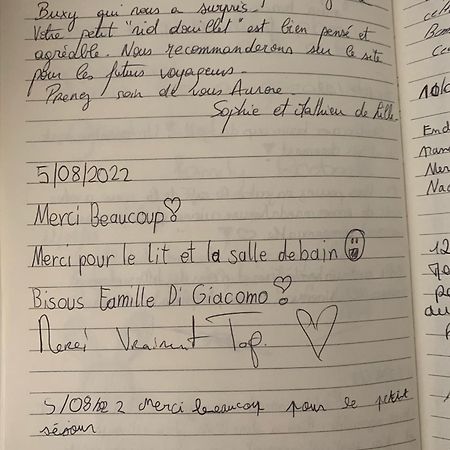 Buxy qui nous a surpris !
Votre petit "nid douillet" est bien pensé et
agréable. Nous recommanderons sur le site
pour les futurs voyageurs.
Prenez soin de vous Aurore.
Sophie et Mathieu de Lille.
5/08/2022
Merci Beaucoup!
Merci pour le lit et la salle de bain
Bisous Famille Di Giacomo!
Merci Vraiment Top.
5/08/22 Merci beaucoup pour le petit
séjour